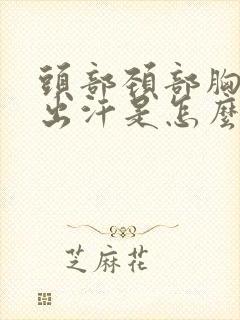 頭部頚部胸
出汗是怎麼
芝麻花